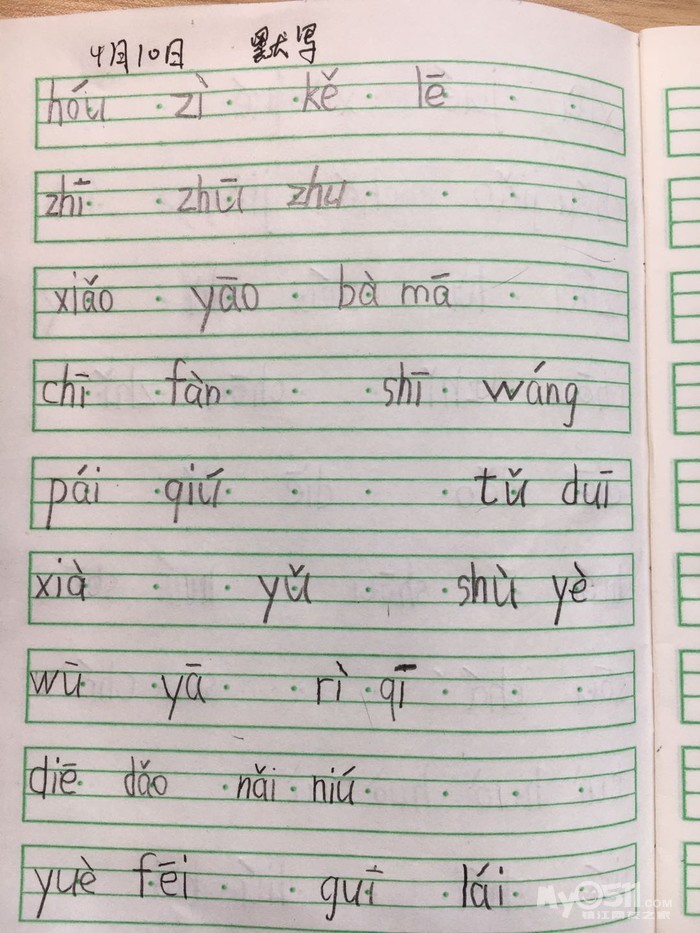 4月10日 默写
hóu zì kě lē
zhī zhū zhu
xiǎo yāo bà mā
chī fàn shī wáng
pái qiú tǔ duī
xià yǔ shù yè
wū yā rì qī
diē dǎo nǎi niú
yuè fēi guī lái
My0511.COM